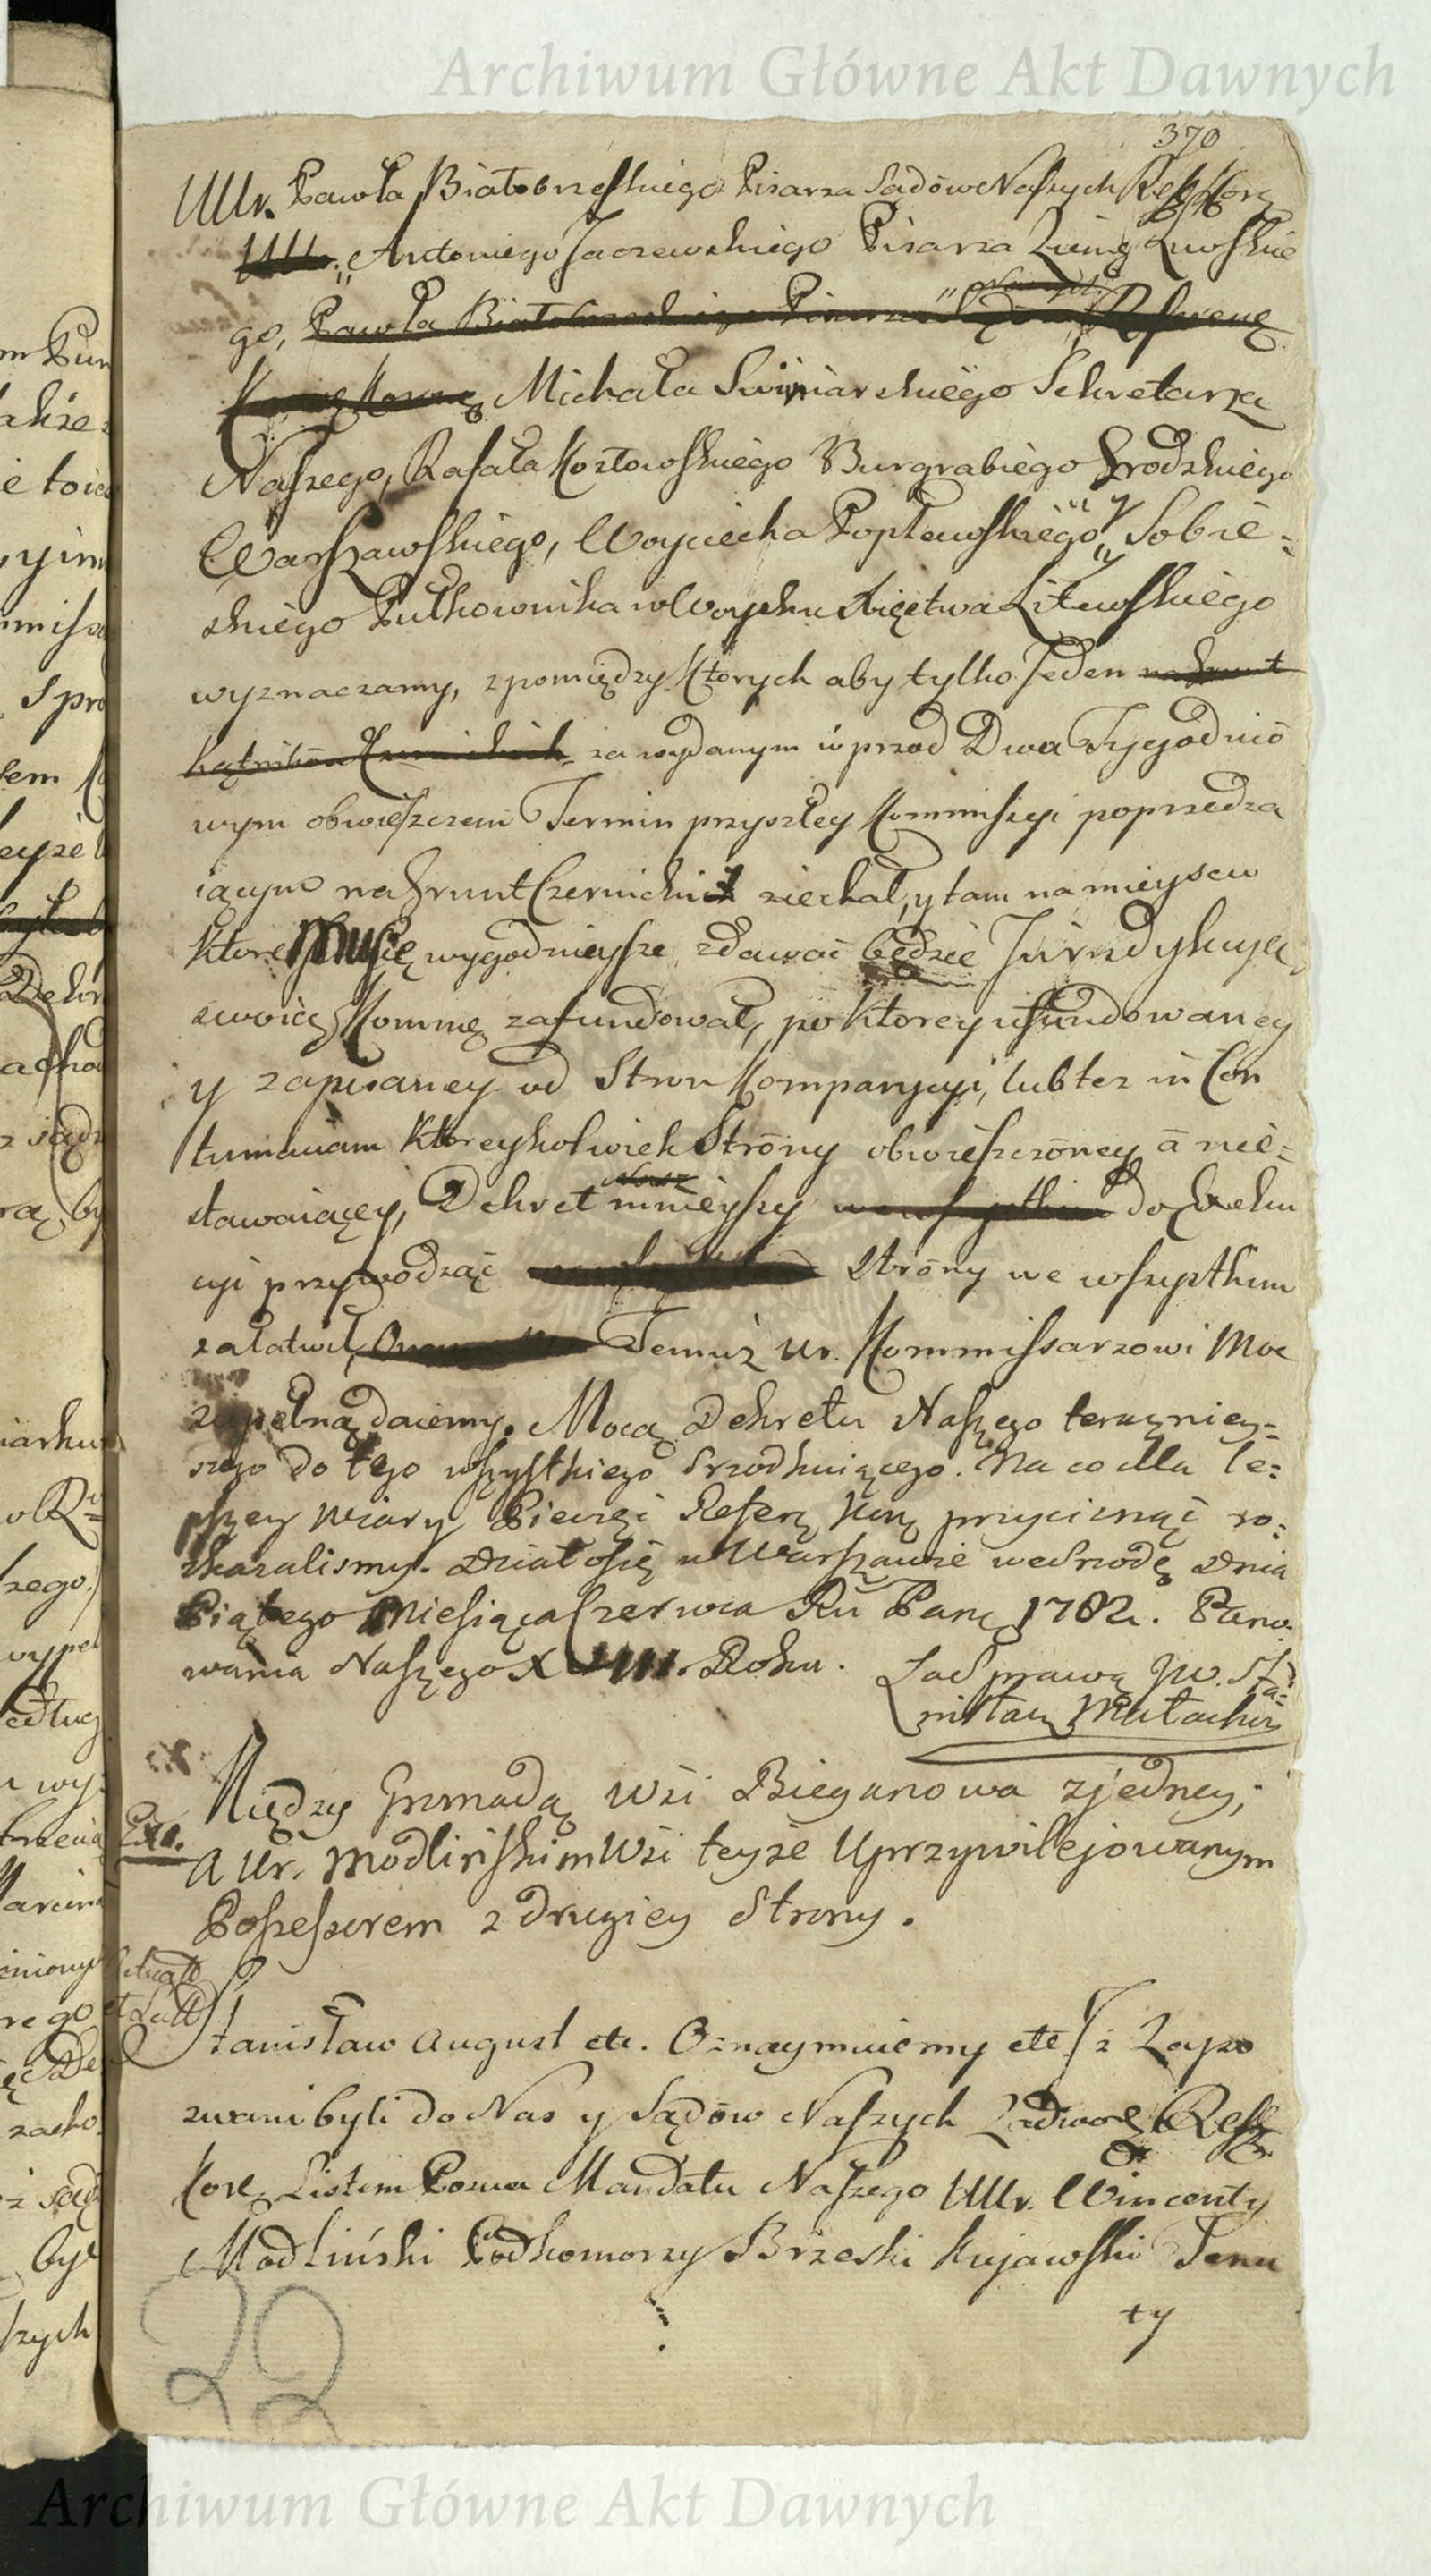 Archiwum Główne Akt Dawnych
370
UUr. Pawła Białobrzeskiego Pisarza Sądów Naszych
Antoniego Jaczewskiego Pisarza Ziemę Lwoskie
go, Pawła Białobrzeskiego Pisarza
Michała Swiniarskiego Sekretarza
Naszego, Rafała Kozłowskiego Burgrabiego Grodzkiego
Warszawskiego, Woyciecha Popławskiego y Sobie=
skiego Pułkownika w Woysku Xięstwa Litewskiego
wyznaczamy, z pomiędzy ktorych aby tylko Jeden na Grunt
za wydanym w przod Dwa Tygodnio
wym obwieszczem Termin przyszłey Kommissyi poprzedza
iącym na Grunt Czernichi ziechał, y tam na mieyscu
ktore mu się wygodnieysze zdawać będzie Jurysdykcyą
swoią Kommę zafundował, po ktorey ufundowaney
y zapisaney od Stron Komparycyi, lub tez in Con
tumaciam ktoreykolwiek Strony obwieszczoney a nie=
stawaiącey, Dekret Nasz nineyszy do Exeku
cyi przywodząc Strony we wszystkim
załatwił, Temuż Ur. Kommissarzowi Moc
zupełną daiemy. Mocą Dekretu Naszego terazniey=
szego do tego wszystkiego srzodkuiącego. Na co dla le=
pszey Wiary Pieczęć Referę Korę przycisnąć ro=
zkazalismy. Działo się w Warszawie we Srzodę Dnia
Piątego Miesiąca Czerwca Ru Panę 1782. Pano
wania Naszego X Roku. Zad sprawą JW. Sta=
nisław Małachow
Między Gromadą Wsi Bieganowa z jedney,
A Ur. Modlińskim Wsi teyże Uprzywilejowanym
Possessorem z drugiey Strony.
Stanisław August etc. Oznaymuiemy etc Iż Zapo
zwani byli do Nas y Sądów Naszych Zadworę Reff
Korę Listem Pozwu Mandatu Naszego UUr. Wincenty
Modliński Podkomorzy Brzeski Kujawski Tenu
ty
29
Archiwum Główne Akt Dawnych